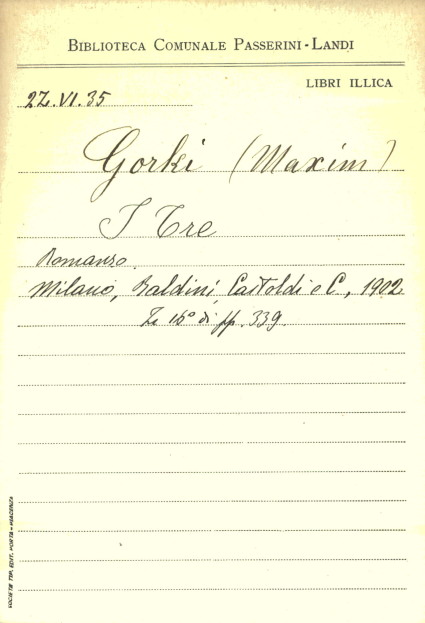 BIBLIOTECA COMUNALE PASSERINI-LANDI
LIBRI ILLICA
22.VI.35
Gorki (Maxim)
I Tre
Romanzo
Milano, Baldini, Castoldi e C., 1902
16° di pp. 339.
SOCIETÀ TIP. EDIT. PORTA - PIACENZA